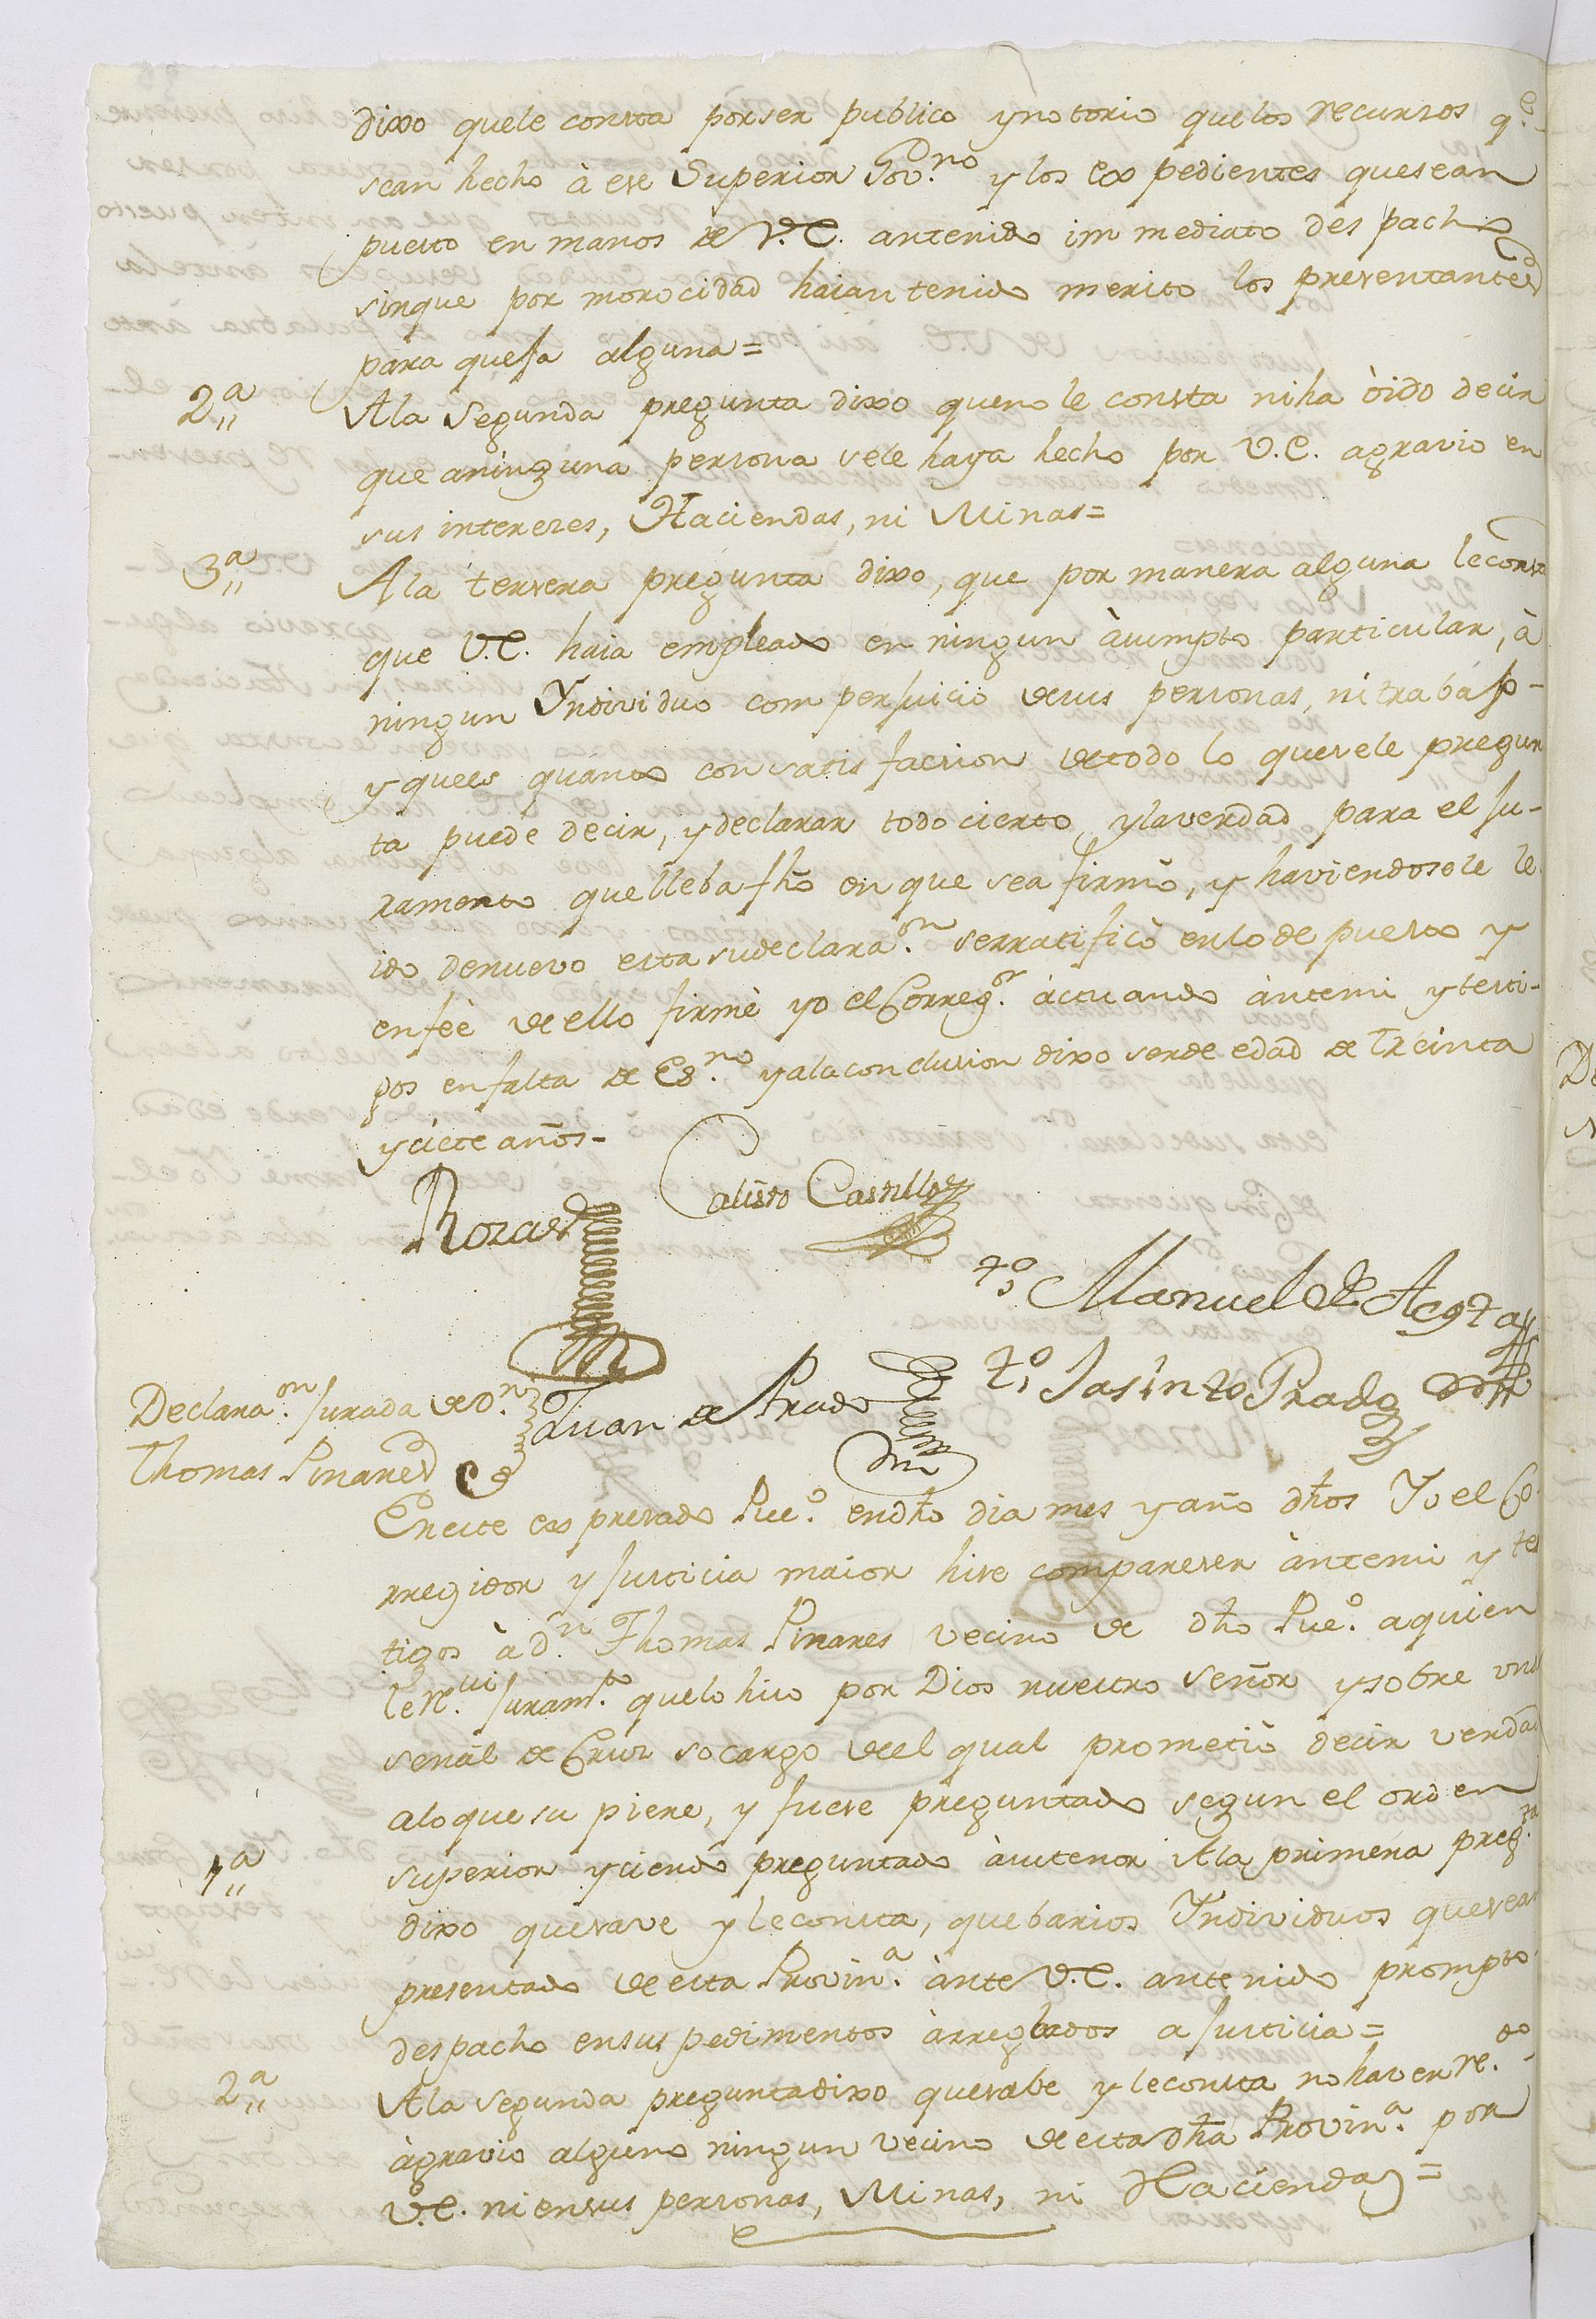 dixo quele consta porser publico ynotorio quelos recursos q.e
sean hecho à ese Superior Gov.no y los expedientes quesean
puesto en manos de V.E. antenido immediato despacho
sinque por morocidad haian tenido merito los presentantes
para queja alguna=
2.a Ala segunda pregunta dixo queno le consta niha òido decir
que aninguna persona sele haya hecho por V.E. agravio en
sus intereses, Haciendas, ni Minas=
3.a Ala tersera pregunta dixo, que por manera alguna leconsta
que V.E. haia empleado en ningun àsumpto particular, à
ningun Yndividuo com perjuicio desus personas, nitrabajo-
yquees quanto consatisfacsion detodo lo quesele pregun
ta puede decir, ydeclarar todo cierto, ylaverdad para el ju-
ramento quelleba fho en que sea firmò, y haviendosele le
ido denuevo esta sudeclara.on serratificò enlo de puesto y
enfeè deello firmè yo el Correg.or àctuando àntemi ytesti-
gos enfalta de Es.no yalaconclusion dixo serde edad de treinta
ysiete años-
Rozas
Calisto Castillo
t.o Manuel de Acosta
t.o Jasinto Prado
Juan de Prado
Declara.on Jurada de D.n
Thomas Pinares
Eneste expresado Pue.o endho dia mes yaño dhos Yo el Co
rregidor y Justicia maior hise compareser àntemi y tes
tigos à d.n Thomas Pinares vecino de dho Pue.o aquien
le Re.cui Juram.to quelo hiso por Dios nuestro Señor ysobre una
señal de Cruz socargo deel qual prometiò decir verdad
aloque su piere, y fuese preguntado segun el orden
1.a superior ysiendo preguntado àsutenor Ala primera preg.ta
dixo quesave yleconsta, quebarios Yndividuos quesean
presentado deesta Provin.a ànte V.E. antenido prompto
despacho ensus pedimentos àrreglados a Justicia=
2.a Ala segunda preguntadixo quesabe yleconsta nohaver re.do
àgravio alguno ningun vecino deesta dha Provin.a por
V.E. niensus personas, Minas, ni Haciendas=